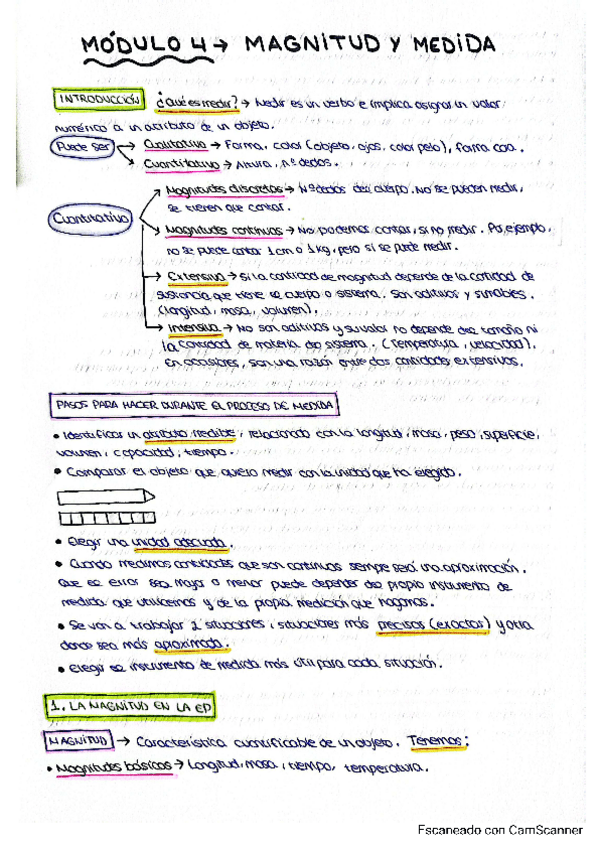 MÓDULO 4 → MAGNITUD Y MEDIDA
INTRODUCCIÓN ¿Qué es medir? → Medir es un verbo e implica asignar un valor
numérico a un atributo de un objeto.
Puede ser → Cualitativo → Forma, color (objeto, ojos, color pelo), forma cara.
→ Cuantitativo → Altura, nº dedos.
Cuantitativo → Magnitudes discretas → Nº dedos del cuerpo. No se pueden medir,
se tienen que contar.
→ Magnitudes continuas → No podemos contar, si no medir. Por ejemplo,
no se puede contar 1 cm o 1 kg, pero si se puede medir.
→ Extensiva → Si la cantidad de magnitud depende de la cantidad de
sustancia que tiene el cuerpo o sistema. Son aditivos y sumables.
(longitud, masa, volumen).
→ Intensiva → No son aditivos y su valor no depende del tamaño ni
la cantidad de materia del sistema. (Temperatura, velocidad).
En ocasiones, son una razón entre dos cantidades extensivas.
PASOS PARA HACER DURANTE EL PROCESO DE MEDIDA
• Identificar un atributo medible, relacionado con la longitud, masa, peso, superficie,
volumen, capacidad, tiempo.
• Comparar el objeto que quiero medir con la unidad que ha elegido.
• Elegir una unidad adecuada.
• Cuando medimos cantidades que son continuos siempre será una aproximación.
Que el error sea mayor o menor puede depender del propio instrumento de
medida que utilicemos y de la propia medición que hagamos.
• Se van a trabajar 2 situaciones, situaciones más precisas (exactas) y otra
donde sea más aproximada.
• Elegir el instrumento de medida más útil para cada situación.
1. LA MAGNITUD EN LA EP
MAGNITUD → Característica cuantificable de un objeto. Tenemos:
• Magnitudes básicas → Longitud, masa, tiempo, temperatura.
Escaneado con CamScanner